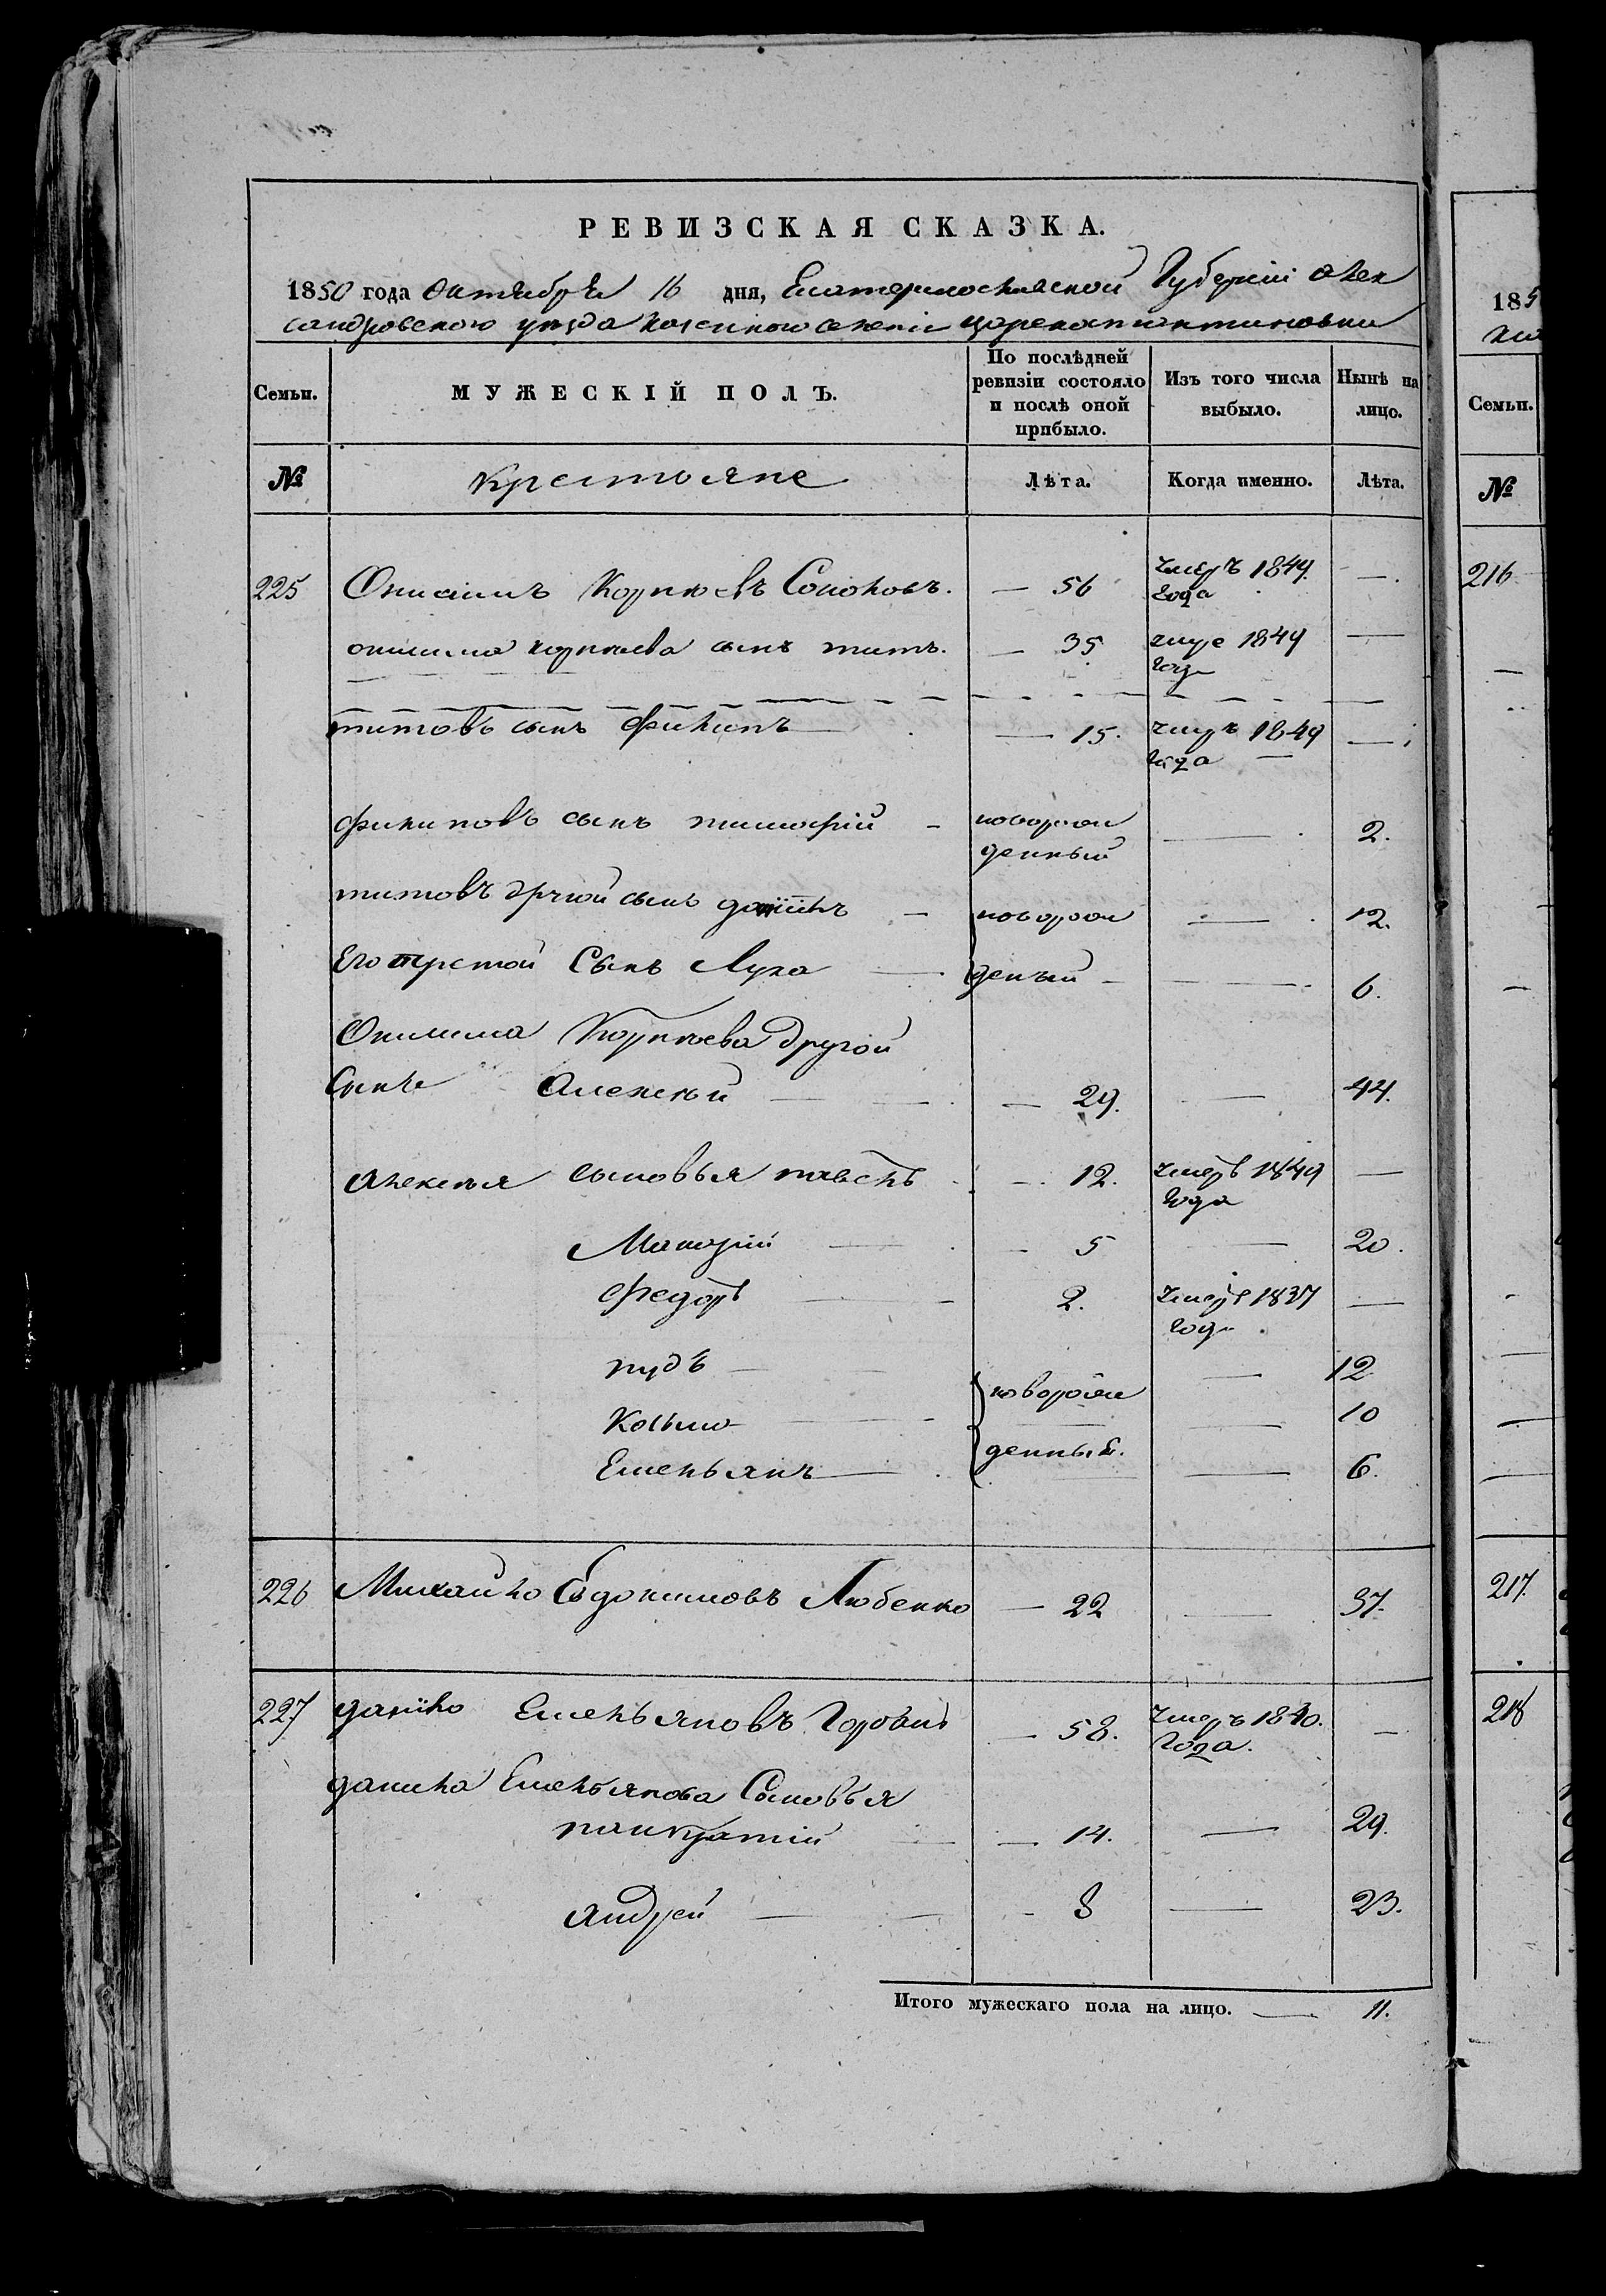 РЕВИЗСКАЯ СКАЗКА.
1850 года октября 16 дня, Екатеринославской Губернии Алек
сандровского уезда казенного селения Цареконстантиновки
Семьи.
МУЖЕСКІЙ ПОЛЪ.
По послѣдней ревизіи состояло и послѣ оной прибыло.
Изъ того числа выбыло.
Нынѣ на лицо.
№ крестьяне Лѣта. Когда именно. Лѣта.
225 Онисимъ Корнѣевъ Соколовъ. — 56 умеръ 1849 года —.
онисима корнѣева сынъ титъ. — 35 умре 1849 года —
титовъ сынъ Филипъ — 15. умеръ 1849 года —
филиповъ сынъ тимофій — новорож денный — 2.
титовъ другой сынъ данiилъ — новорож — 12.
Его третой Сынъ Лука — деный — 6.
Онисима Корнѣева Другой
Сынъ Алексѣй — 29. — 44.
алексѣя сыновья павелъ — 12. умеръ 1849 года —
Макарій — 5 — 20.
Федоръ — 2. умеръ 1837 года —
пудъ — новорож — 12
Козьма — 10
Емельянъ — денный. — 6.
226 Михайло Евдокимовъ Любенко — 22 — 37.
227 данило Емельяновъ Горбань — 58. умеръ 1840. Года. —
данила Емельянова Сыновья
панкратій — 14. — 29.
андрей — 8 — 23.
Итого мужескаго пола на лицо. — 11.
185
Семьи.
№
216
217.
218